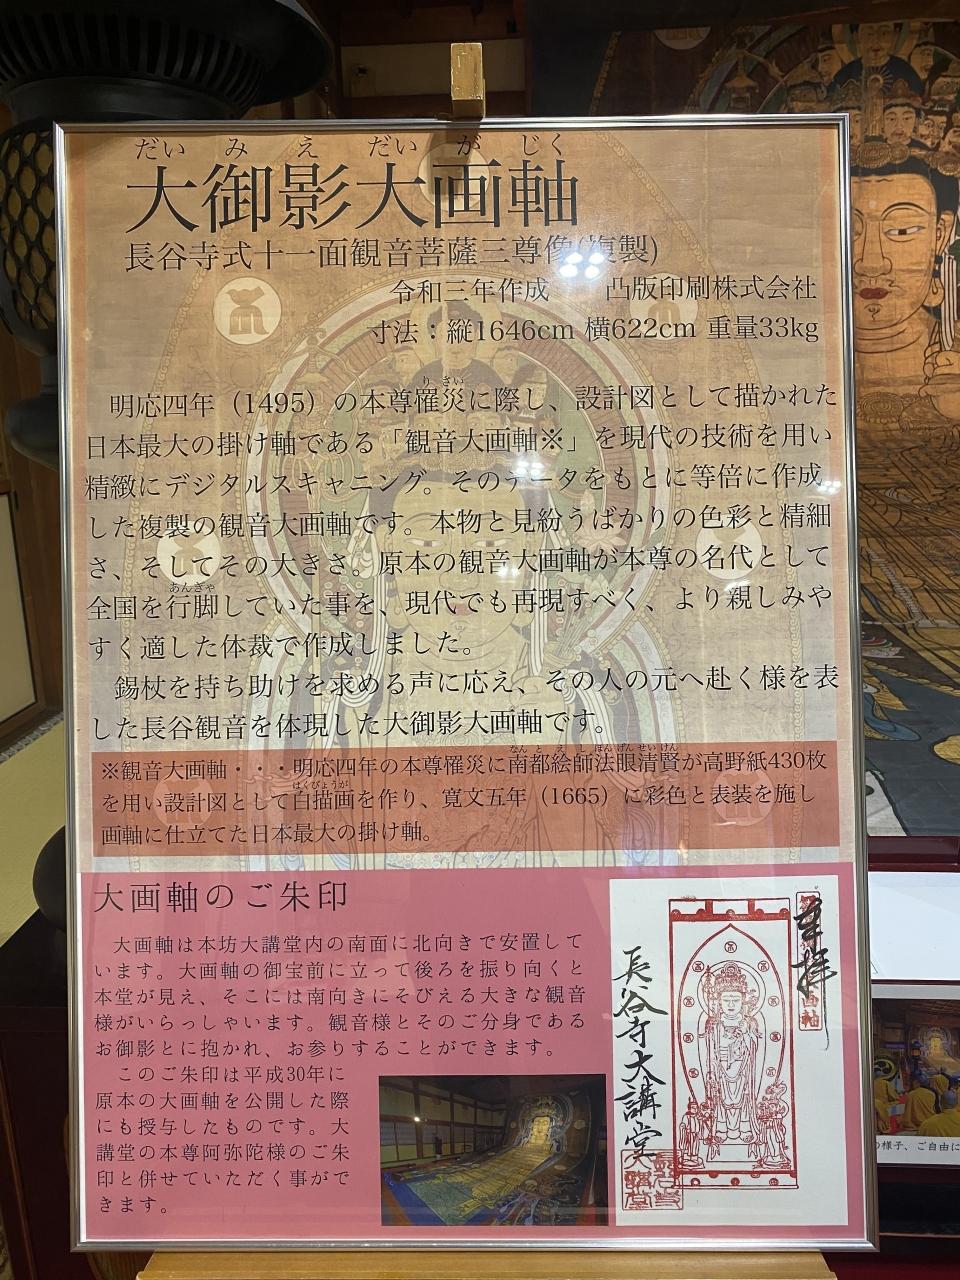 だいみえだいがじく
大御影大画軸
長谷寺式十一面観音菩薩三尊像(複製)
令和三年作成 凸版印刷株式会社
寸法：縦1646cm 横622cm 重量33kg
りさい
明応四年（1495）の本尊罹災に際し、設計図として描かれた
日本最大の掛け軸である「観音大画軸※」を現代の技術を用い
精緻にデジタルスキャニング。そのデータをもとに等倍に作成
した複製の観音大画軸です。本物と見紛うばかりの色彩と精細
さ、そしてその大きさ。原本の観音大画軸が本尊の名代として
あんぎゃ
全国を行脚していた事を、現代でも再現すべく、より親しみや
すく適した体裁で作成しました。
錫杖を持ち助けを求める声に応え、その人の元へ赴く様を表
した長谷観音を体現した大御影大画軸です。
なんとえしほんげんせいけん
※観音大画軸・・・明応四年の本尊罹災に南都絵師法眼清賢が高野紙430枚
はくびょうが
を用い設計図として白描画を作り、寛文五年（1665）に彩色と表装を施し
画軸に仕立てた日本最大の掛け軸。
大画軸のご朱印
大画軸は本坊大講堂内の南面に北向きで安置して
います。大画軸の御宝前に立って後ろを振り向くと
本堂が見え、そこには南向きにそびえる大きな観音
様がいらっしゃいます。観音様とそのご分身である
お御影とに抱かれ、お参りすることができます。
このご朱印は平成30年に
原本の大画軸を公開した際
にも授与したものです。大
講堂の本尊阿弥陀様のご朱
印と併せていただく事がで
きます。
奉拝
長谷寺大講堂
の様子、ご自由に